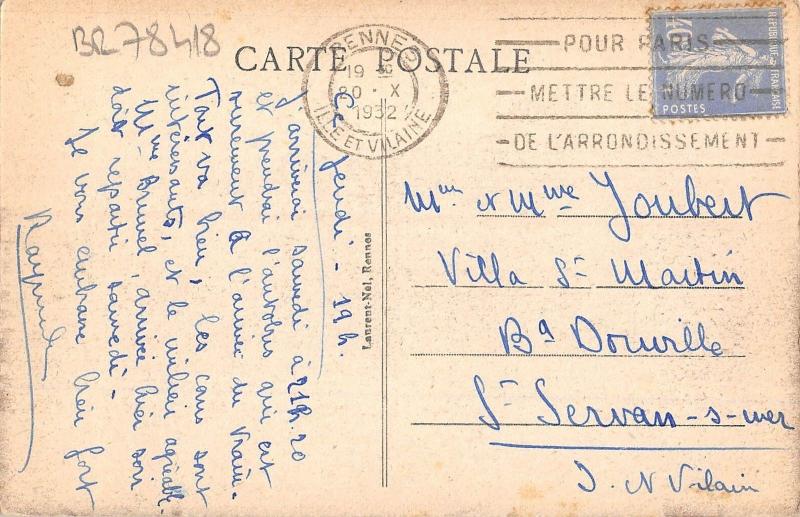 BR78418
CARTE POSTALE
RENNES
19 H
20 · X
1932
ILLE ET VILAINE
POUR PARIS
METTRE LE NUMERO
DE L'ARRONDISSEMENT
REPUBLIQUE FRANÇAISE
POSTES
Ce jeudi - 19h.
J'arriverai samedi à 21h.20
et prendrai l'autobus qui est
surement à l'arrivée du train.
Tout va bien, les cours sont
intéressants, et le milieu agréable.
Mme Brunel, arrivée hier soir
doit repartir samedi -
Je vous embrasse bien fort
Laurent-Nel, Rennes
Mr et Mme Joubert
Villa St Martin
Bd Douville
St Servan-s-mer
I. N Vilain